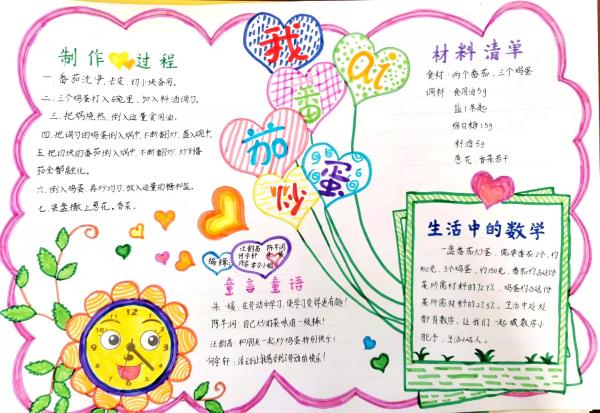 制作过程
一.番茄洗净,去皮,切小块备用。
二.三个鸡蛋打入碗里,加入料酒调匀。
三.把锅烧热,倒入适量食用油。
四.把调匀的鸡蛋倒入锅中,不断翻炒,盛入碗中
五.把切块的番茄倒入锅中,不断翻炒,炒到番
茄全都融化。
六.倒入鸡蛋,再炒均匀,放入适量的糖和盐。
七.装盘撒上葱花。香菜。
我
ai
番
茄
炒
蛋
材料清单
食材:两个番茄,三个鸡蛋
调料:食用油5g
盐1茶匙
绵白糖15g
料酒5g
葱花 香菜若干
生活中的数学
一盘番茄炒蛋,需要番茄2个,约
400克,3个鸡蛋,约150克,番茄约占这份
菜所需材料的72.7%,鸡蛋约占这份
菜所需材料的27.3%。生活中处处
都有数学,让我们一起做数学小
能手,生活小达人。
编辑:
童言童语
朱媛:在劳动中学习,使学习变得更有趣!
陈芊润:自己炒的菜味道一级棒!
汪朝茜:和朋友一起炒鸡蛋特别快乐!
何宇轩:活动让我感受到了劳动的快乐!
12
1
2
3
4
5
6
7
8
9
10
11